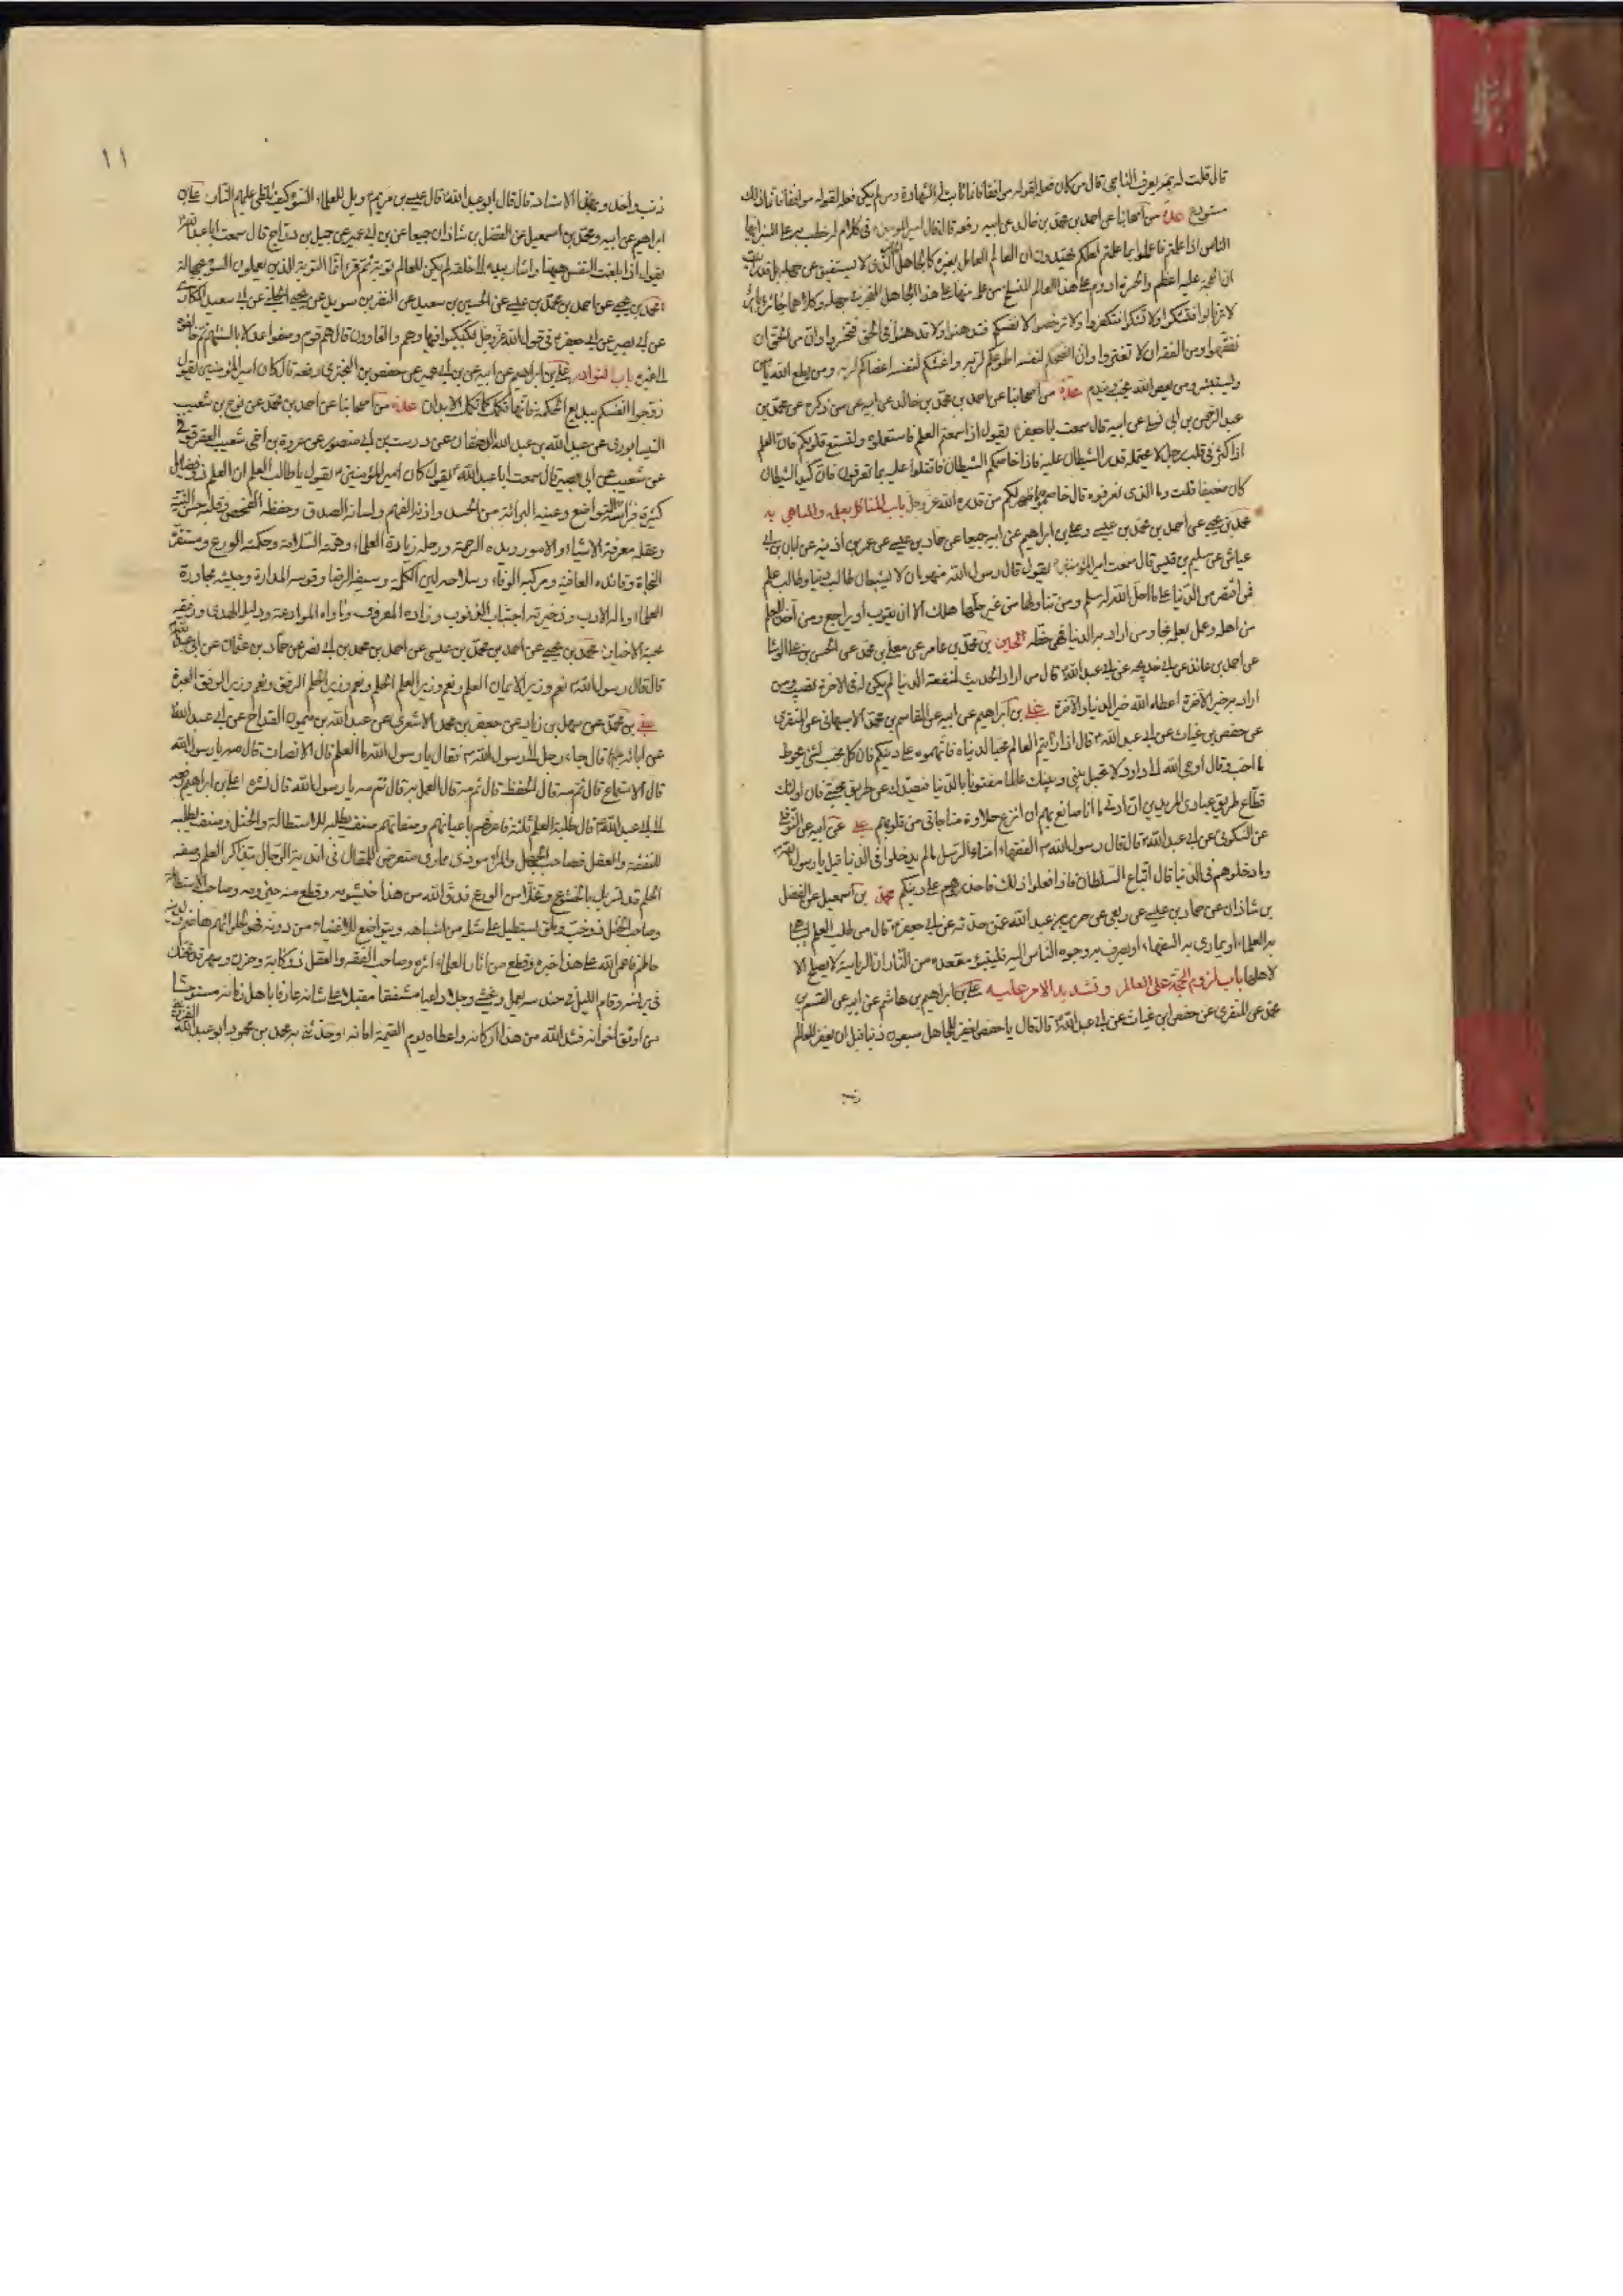 قال قلت له بم يعرف الناجى قال من كان فعله لقوله موافقا فانما ثابت له الشهادة ومن لم يكن فعله لقوله موافقا فانما ذلك
مستودع عدة من اصحابنا عن احمد بن محمد بن خالد عن ابيه رفعه قال قال امير المؤمنين في كلام له خطب به على المنبر ايها
الناس اذا علمتم فاعملوا بما علمتم لعلكم تهتدون ان العالم العامل بغيره كالجاهل الحائر الذى لا يستفيق عن جهله بل قد رايت
ان الحجة عليه اعظم والحسرة ادوم على هذا العالم المنسلخ من علمه منها على هذا الجاهل المتحير في جهله وكلاهما حائر بائر
لا ترتابوا فتشكوا ولا تشكوا فتكفروا ولا ترخصوا لانفسكم فتدهنوا ولا تدهنوا في الحق فتخسروا وان من الحق ان
تفقهوا ومن الفقه ان لا تغتروا وان انصحكم لنفسه اطوعكم لربه واغشكم لنفسه اعصاكم لربه ومن يطع الله يامن
ويستبشر ومن يعص الله يخب ويندم عدة من اصحابنا عن احمد بن محمد بن خالد عن ابيه عمن ذكره عن محمد بن
عبد الرحمن بن ابي ليلى عن ابيه قال سمعت ابا جعفر يقول اذا سمعتم العلم فاستعملوه ولتتسع قلوبكم فان العلم
اذا كثر في قلب رجل لا يحتمله قدر الشيطان عليه فاذا خاصمكم الشيطان فاقبلوا عليه بما تعرفون فان كيد الشيطان
كان ضعيفا فقلت وما الذى نعرفه قال خاصموه بما ظهر لكم من قدرة الله عز وجل باب المستاكل بعلمه والمباهى به
محمد بن يحيى عن احمد بن محمد بن عيسى وعلى بن ابراهيم عن ابيه جميعا عن حماد بن عيسى عن عمر بن اذينة عن ابان بن ابى
عياش عن سليم بن قيس قال سمعت امير المؤمنين يقول قال رسول الله منهومان لا يشبعان طالب دنيا وطالب علم
فمن اقتصر من الدنيا على ما احل الله له سلم ومن تناولها من غير حلها هلك الا ان يتوب او يراجع ومن اخذ العلم
من اهله وعمل بعلمه نجا ومن اراد به الدنيا فهى حظه الحسين بن محمد بن عامر عن معلى بن محمد عن الحسن بن على الوشا
عن احمد بن عائذ عن ابى خديجة عن ابى عبد الله قال من اراد الحديث لمنفعة الدنيا لم يكن له في الاخرة نصيب ومن
اراد به خير الاخرة اعطاه الله خير الدنيا والاخرة على بن ابراهيم عن ابيه عن القاسم بن محمد الاصبهانى عن المنقرى
عن حفص بن غياث عن ابى عبد الله قال اذا رايتم العالم محبا لدنياه فاتهموه على دينكم فان كل محب لشئ يحوط
ما احب وقال اوحى الله الى داود لا تجعل بينى وبينك عالما مفتونا بالدنيا فيصدك عن طريق محبتى فان اولئك
قطاع طريق عبادى المريدين ان ادنى ما انا صانع بهم ان انزع حلاوة مناجاتى من قلوبهم على عن ابيه عن النوفلى
عن السكونى عن ابى عبد الله قال قال رسول الله الفقهاء امناء الرسل ما لم يدخلوا في الدنيا قيل يا رسول الله
وما دخولهم في الدنيا قال اتباع السلطان فاذا فعلوا ذلك فاحذروهم على دينكم محمد بن اسمعيل عن الفضل
بن شاذان عن حماد بن عيسى عن ربعى بن عبد الله عمن حدثه عن ابى جعفر قال من طلب العلم ليباهى
به العلماء او يمارى به السفهاء او يصرف به وجوه الناس اليه فليتبوء مقعده من النار ان الرياسة لا يصلح الا
لاهلها باب لزوم الحجة على العالم وتشديد الامر عليه على بن ابراهيم بن هاشم عن ابيه عن القسم بن
محمد عن المنقرى عن حفص بن غياث عن ابى عبد الله قال قال يا حفص يغفر للجاهل سبعون ذنبا قبل ان يغفر للعالم
١١
ذنب واحد وبهذا الاسناد قال قال ابو عبد الله قال عيسى بن مريم ويل للعلماء السوء كيف تلظى عليهم النار على بن
ابراهيم عن ابيه ومحمد بن اسمعيل عن الفضل بن شاذان جميعا عن بن ابى عمير عن جميل بن دراج قال سمعت ابا عبد الله
يقول اذا بلغت النفس ههنا واشار بيده الى حلقه لم يكن للعالم توبة ثم قرأ انما التوبة للذين يعملون السوء بجهالة
محمد بن يحيى عن احمد بن محمد بن عيسى عن الحسين بن سعيد عن النضر بن سويد عن يحيى الحلبى عن ابى سعيد المكارى
عن ابى بصير عن ابى جعفر في قول الله عز وجل فكبكبوا فيها هم والغاوون قال هم قوم وصفوا عدلا بالسنتهم ثم خالفوه
الى غيره باب النوادر على بن ابراهيم عن ابيه عن بن ابى عمير عن حفص بن البخترى رفعه قال كان امير المؤمنين يقول
روحوا انفسكم ببديع الحكمة فانها تكل كما تكل الابدان عدة من اصحابنا عن احمد بن محمد عن نوح بن شعيب
النيسابورى عن عبيد الله بن عبد الله الدهقان عن درست بن ابى منصور عن عروة بن اخى شعيب العقرقوفى
عن شعيب عن ابى بصير قال سمعت ابا عبد الله يقول كان امير المؤمنين يقول يا طالب العلم ان العلم ذو فضايل
كثيرة فراسه التواضع وعينه البرائة من الحسد واذنه الفهم ولسانه الصدق وحفظه الفحص وقلبه حسن النية
وعقله معرفة الاشياء والامور ويده الرحمة ورجله زيارة العلماء وهمته السلامة وحكمته الورع ومستقره
النجاة وقائده العافية ومركبه الوفاء وسلاحه لين الكلمة وسيفه الرضا وقوسه المدارة وجيشه محاورة
العلماء وماله الادب وذخيرته اجتناب الذنوب وزاده المعروف وماواه الموادعة ودليله الهدى ورفيقه
محبة الاخيار محمد بن يحيى عن احمد بن محمد بن عيسى عن احمد بن محمد بن ابى نصر عن حماد بن عثمان عن ابى عبد الله
قال قال رسول الله نعم وزير الايمان العلم ونعم وزير العلم الحلم ونعم وزير الحلم الرفق ونعم وزير الرفق العبرة
على بن محمد عن سهل بن زياد عن جعفر بن محمد الاشعرى عن عبد الله بن ميمون القداح عن ابى عبد الله
عن ابائه قال جاء رجل الى رسول الله فقال يا رسول الله ما العلم قال الانصات قال ثم مه يا رسول الله
قال الاستماع قال ثم مه قال الحفظ قال ثم مه قال العمل به قال ثم مه يا رسول الله قال نشره على بن ابراهيم رفعه
الى ابى عبد الله قال طلبة العلم ثلثة فاعرفهم باعيانهم وصفاتهم صنف يطلبه للاستطالة والختل وصنف يطلبه
للفقه والعقل فصاحب الجهل والمراء موذى ممارى متعرض للمقال في اندية الرجال بتذاكر العلم وصفة
الحلم قد تسربل بالخشوع وتخلا من الورع فدق الله من هذا خيشومه وقطع منه حيزومه وصاحب الاستطالة
وصاحب الختل ذو خب وملق يستطيل على مثله من اشباهه ويتواضع للاغنياء من دونه فهو لحلوائهم هاضم ولدينه
حاطم فاعمى الله على هذا خبره وقطع من اثار العلماء اثره وصاحب الفقه والعقل ذو كابة وحزن وسهر قد تحنك
في برنسه وقام الليل في حندسه يعمل ويخشى وجلا داعيا مشفقا مقبلا على شانه عارفا باهل زمانه مستوحشا
من اوثق اخوانه فشد الله من هذا اركانه واعطاه يوم القيمة امانه وحدثنى به محمد بن محمود ابو عبد الله القزوينى